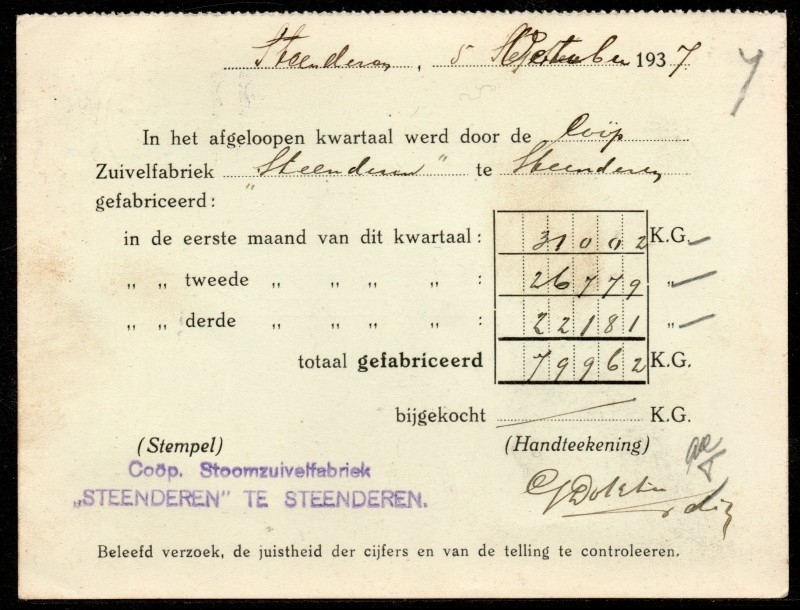 Steenderen, 5 October 1937
In het afgeloopen kwartaal werd door de Coöp
Zuivelfabriek "Steenderen" te Steenderen
gefabriceerd:
in de eerste maand van dit kwartaal: 31002 K.G.
„ „ tweede „ „ „ „ : 26779 „
„ „ derde „ „ „ „ : 22181 „
totaal gefabriceerd 79962 K.G.
bijgekocht K.G.
(Stempel) (Handteekening)
Coöp. Stoomzuivelfabriek
„STEENDEREN" TE STEENDEREN.
dir
Beleefd verzoek, de juistheid der cijfers en van de telling te controleeren.